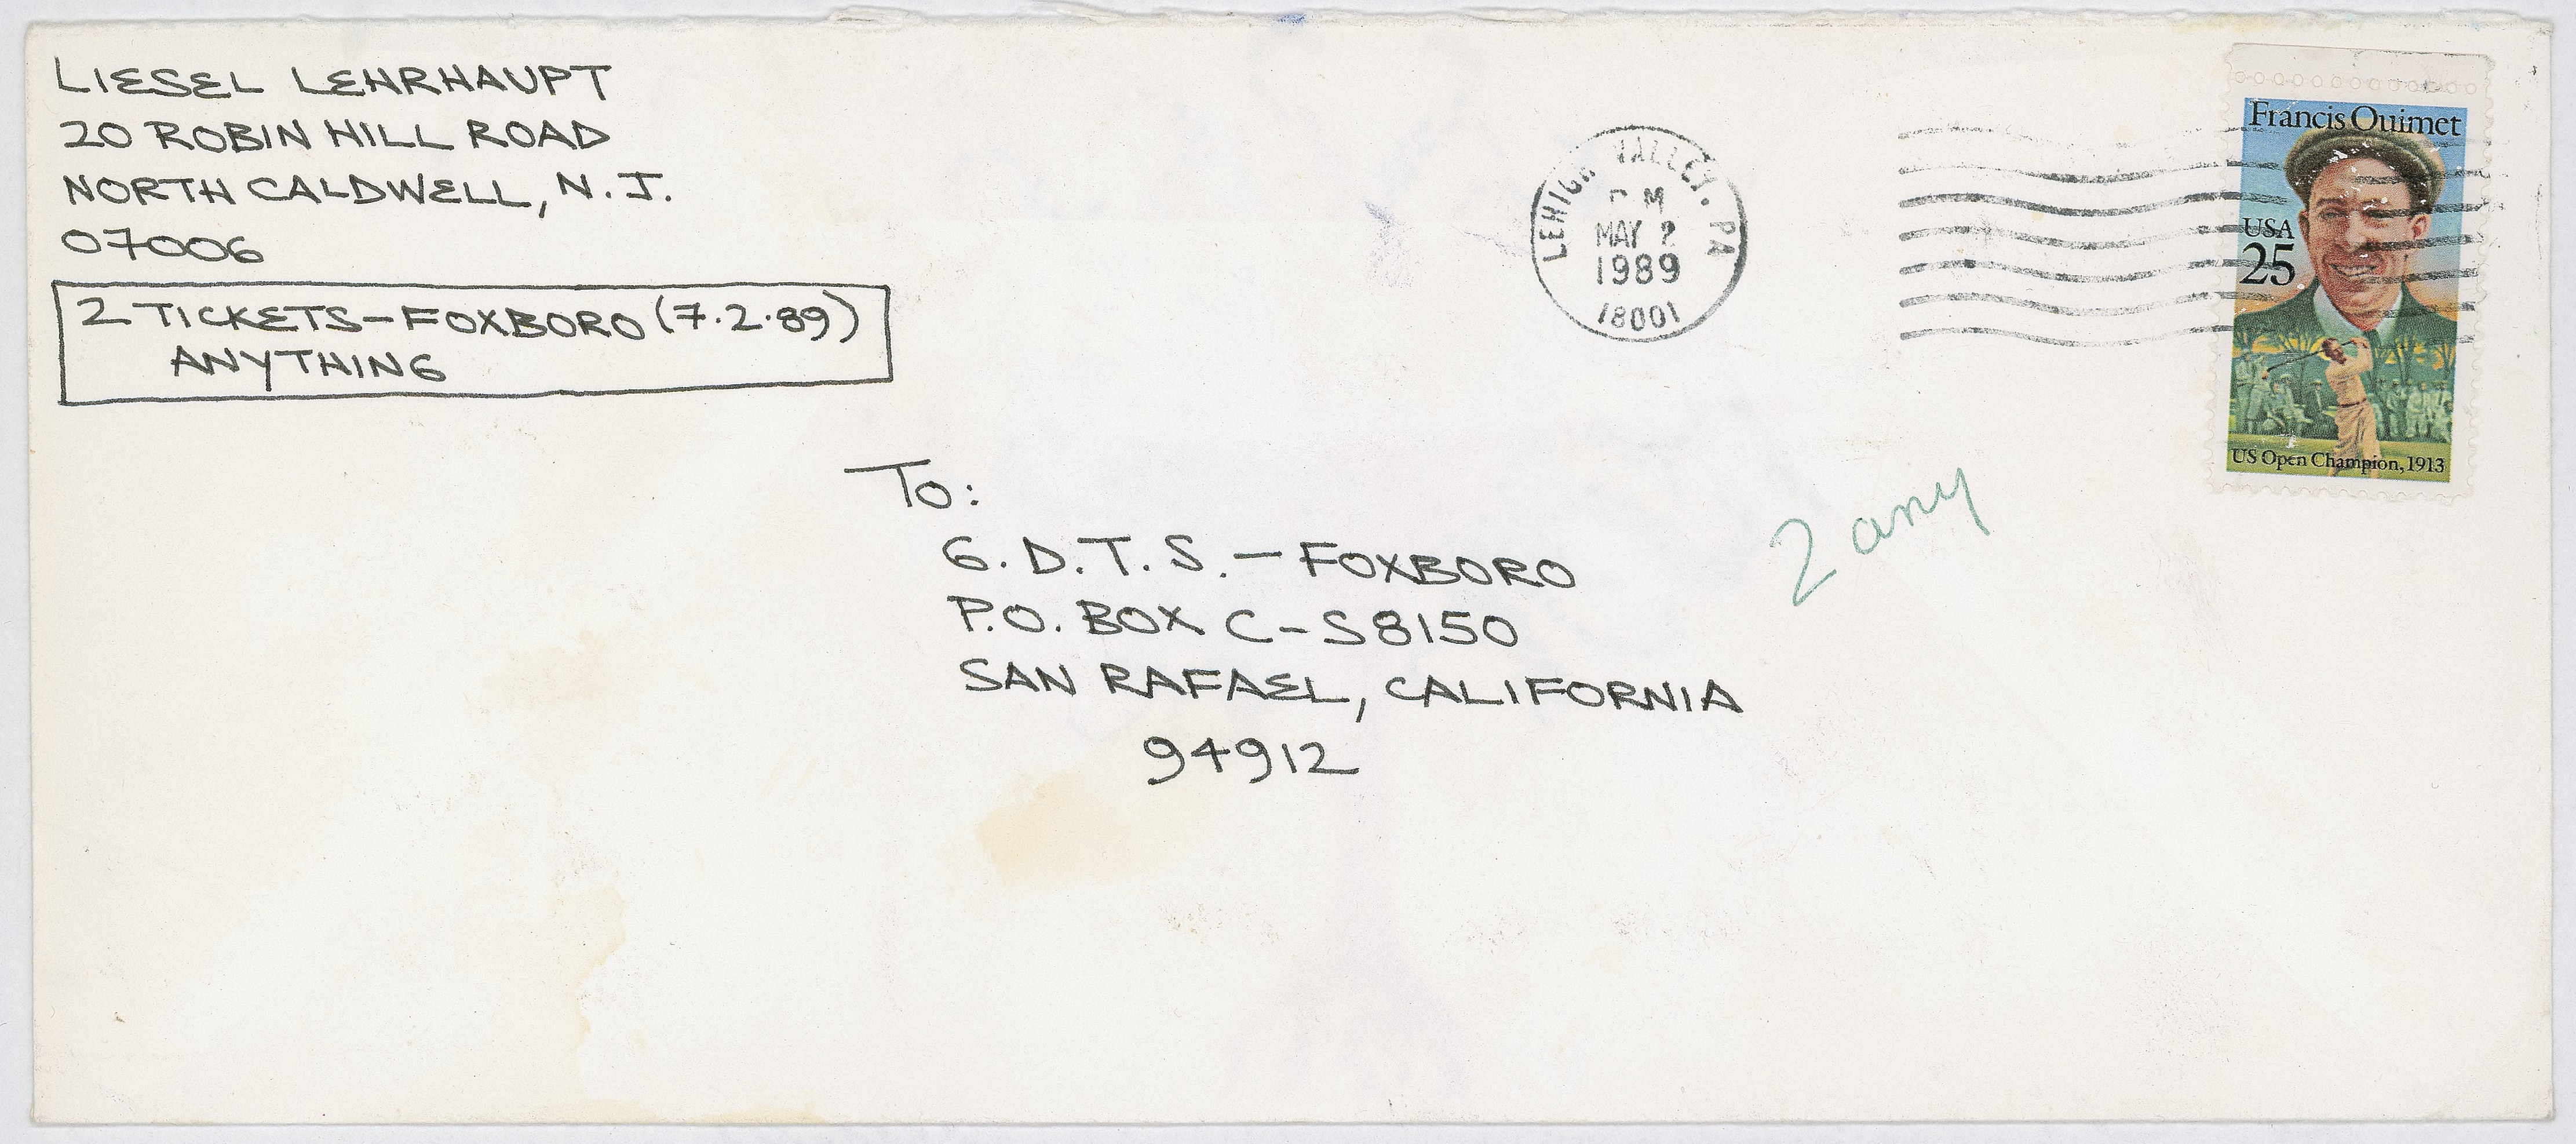 LIESEL LEHRHAUPT
20 ROBIN HILL ROAD
NORTH CALDWELL, N.J.
07006
2 TICKETS-FOXBORO (7.2.89)
ANYTHING
LEHIGH VALLEY, PA
PM
MAY 2
1989
18001
Francis Ouimet
USA
25
US Open Champion, 1913
To:
G.D.T.S. - FOXBORO
P.O. BOX C-S8150
SAN RAFAEL, CALIFORNIA
94912
2 any